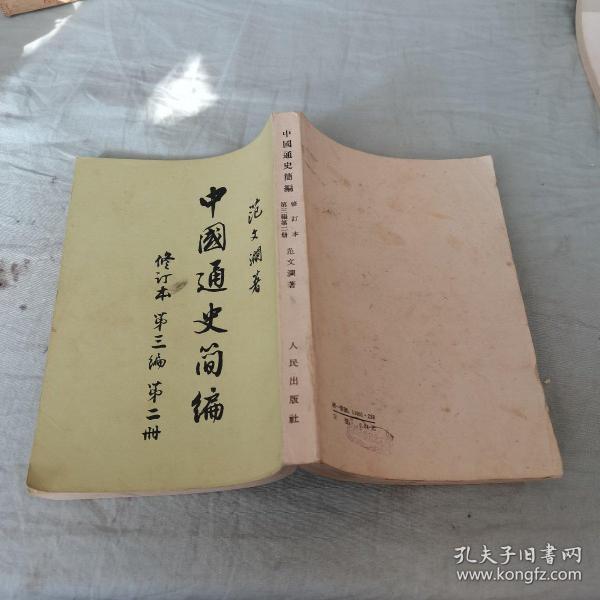 范文瀾著
中國通史简編
修订本 第三編 第二冊
中國通史簡編
修訂本
第三編第二册
范文瀾著
人民出版社
孔夫子旧书网
www.kongfz.com